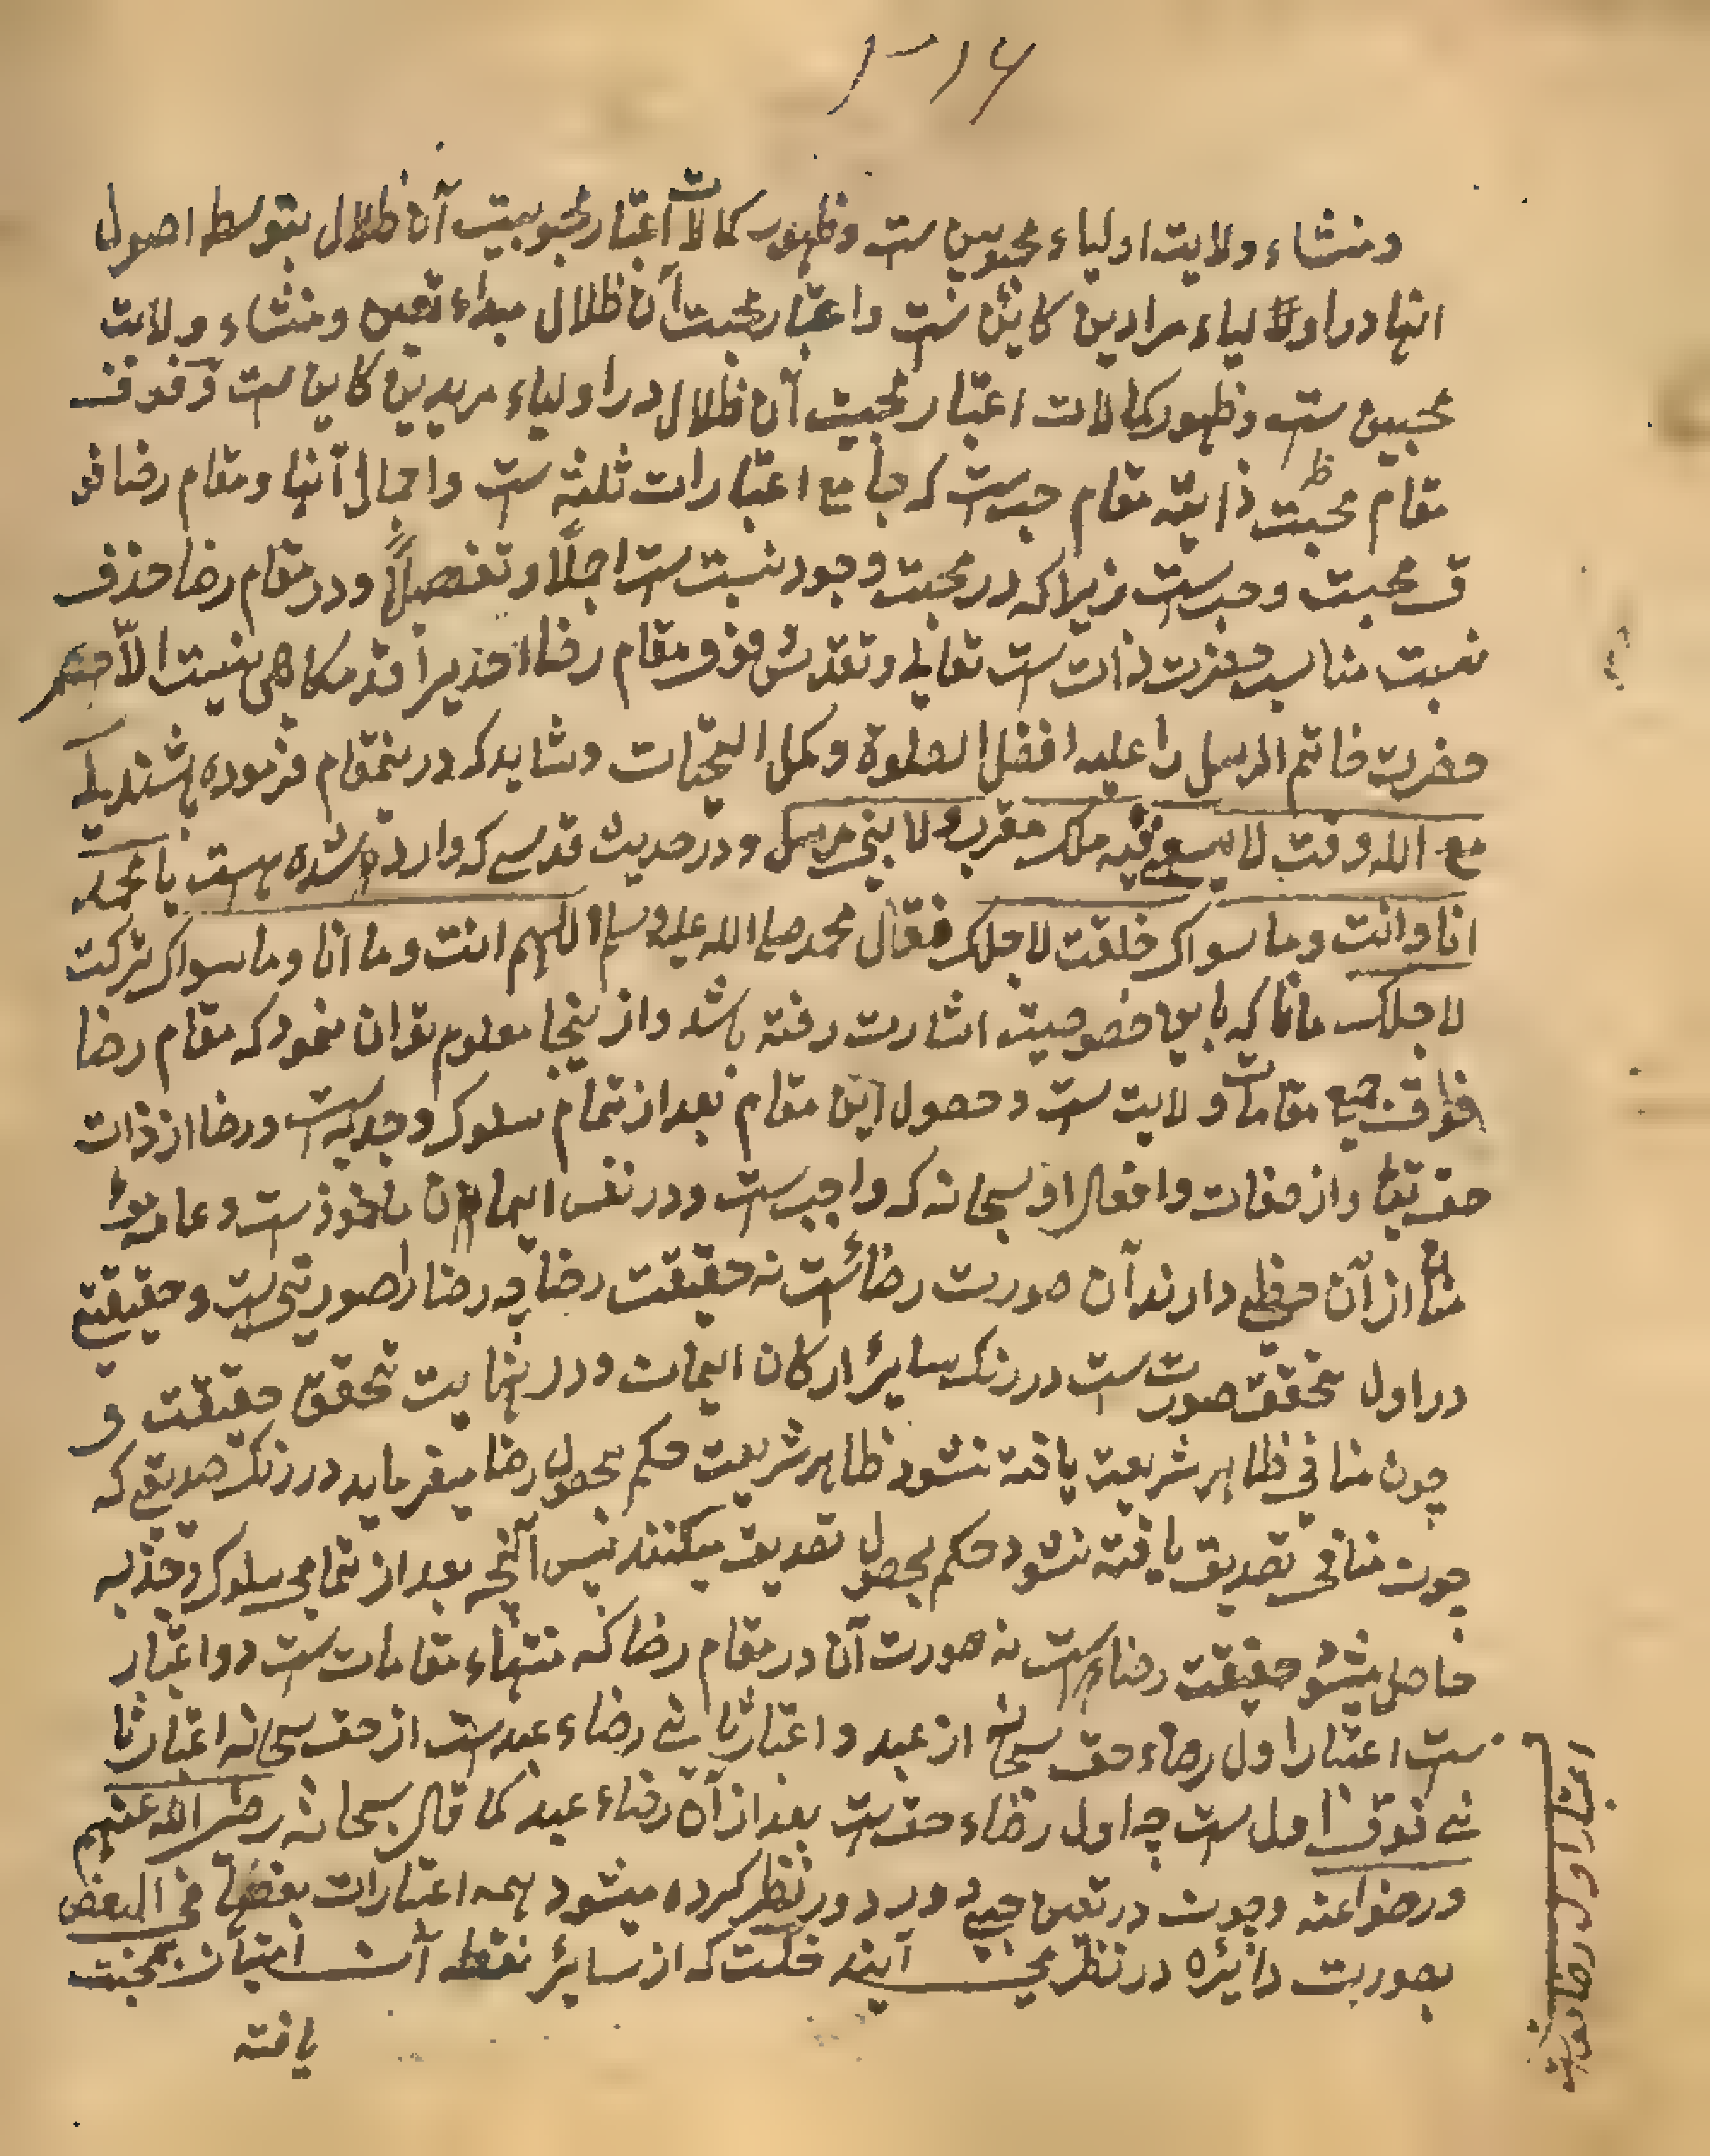 ۱-۱۶
ومنشاء ولایت اولیاء محبوبین ست وظهور کمالات اعتبار محبوبیت آن ظلال بتوسط اصول
آنها در اولیاء مرادین کاین ست واعتبار محبت آن ظلال مبداء تعین ومنشاء ولایت
محبین ست وظهور کمالات اعتبار محبیت آن ظلال در اولیاء مریدین کاین ست وفوق
مقام محبت ذاتیه مقام حب ست که جامع اعتبارات ثلثه ست واجمال آنها ومقام رضا فو
ق محبت وحب ست زیرا که در محبت وجود نسبت ست اجمالا وتفصیلاً ودر مقام رضا حذف
نسبت مناسب حضرت ذات ست تعالی وتقدس فوق مقام رضا احدیرا قدمگاهی نیست الا
حضرت خاتم الرسل را علیه افضل الصلوة وکمل التحیات وشاید که درینمقام فرموده باشند لی
مع الله وقت لا یسعنی فیه ملک مقرب ولا نبی مرسل ودر حدیث قدسی که وارد شده است یا محمد
انا وانت وما سواک خلقت لاجلک فقال محمد صلی الله علیه وسلم اللهم انت وما انا وما سواک ترکت
لاجلک مانا که باین خصوصیت اشارت رفته باشد وازینجا معلوم توان نمود که مقام رضا
فوق جمیع مقامات ولایت ست وحصول این مقام بعد از تمام سلوک وجذبه است ورضا از ذات
حق تعالی واز صفات وافعال او سبحانه که واجب ست ودر نفس ایمان ماخوذ ست وعامه
از آن حظی دارند آن صورت رضا ست نه حقیقت رضا چه رضا را صورتی ست وحقیقتی
در اول تحقق صورت ست در رنگ سایر ارکان ایمان ودر نهایت تحقق حقیقت و
چون منافی ظاهر شریعت یافته نشود ظاهر شریعت حکم بحصول رضا میفرماید در رنگ تصدیق که
چون منافی تصدیق یافته نشود حکم بحصول تصدیق میکنند پس آنچه بعد از تمامی سلوک وجذبه
حاصل میشود حقیقت رضاء ست نه صورت آن در مقام رضا که منتهاء مقامات ست دو اعتبار
ست اعتبار اول رضاء حق سبحانه از عبد واعتبار ثانی رضاء عبد ست از حق سبحانه اعتبار ثا
نی فوق اول ست چه اول رضاء حق ست بعد از آن رضاء عبد کما قال سبحانه رضی الله عنهم
ورضوا عنه وچون در تعین حبی دور نظر کرده میشود همه اعتبارات بعضها فی البعض
بصورت دائره در نظر می آیند خلت که از سائر نقطه آن امتیاز بمحبت
یافته
اعتبار اول رضا